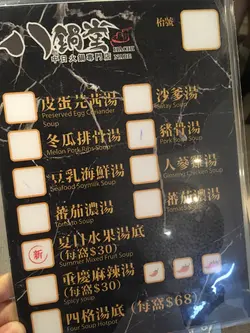 八鍋堂
中日火鍋專門店
枱號
皮蛋芫茜湯
Preserved Egg Coriander Soup
沙爹湯
Satay Soup
冬瓜排骨湯
Melon Pork Ribs Soup
豬骨湯
Pork Bone Soup
豆乳海鮮湯
Seafood Soymilk Soup
人蔘雞湯
Ginseng Chicken Soup
蕃茄濃湯
Tomato Soup
新
夏日水果湯底
(每窩$30)
Summer Mixed Fruit Soup
重慶麻辣湯
(每窩$30)
Spicy soup
四格湯底 (每窩$68)
Four Soup Hotpot